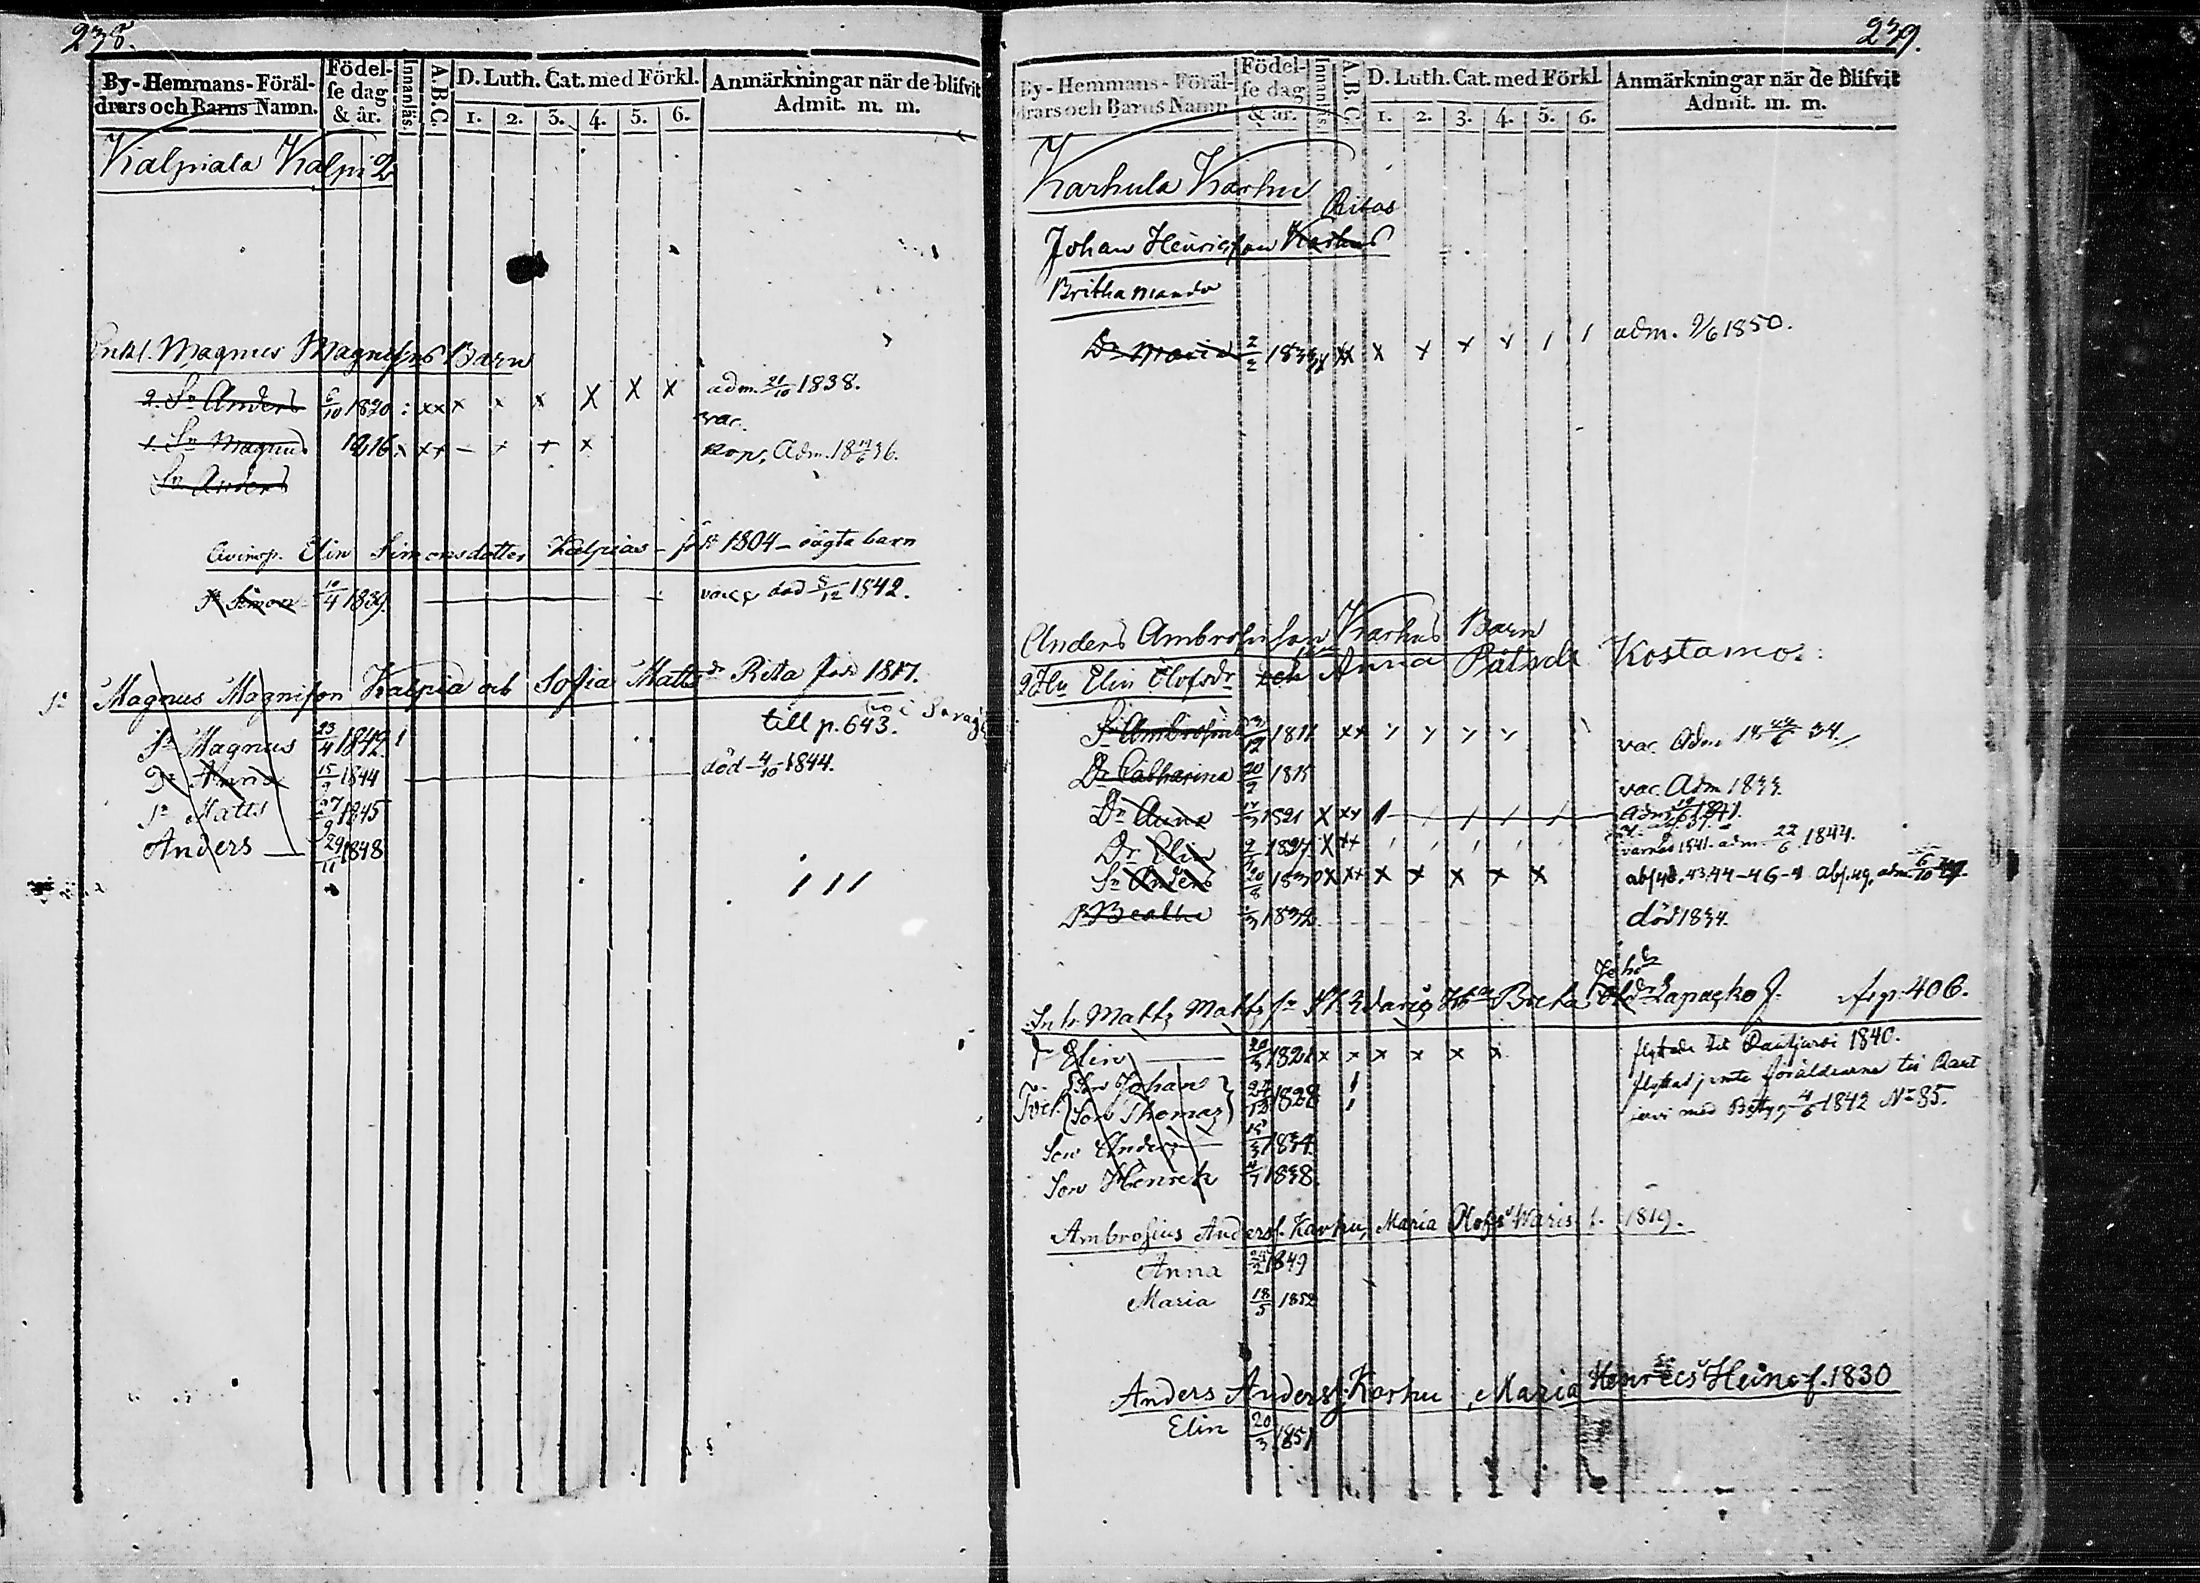 238.
By-Hemmans-Föräl-
drars och Barns Namn.
Födel-
se dag
& år.
Innanläs.
A.B.C.
D. Luth. Cat. med Förkl.
1. 2. 3. 4. 5. 6.
Anmärkningar när de blifvit
Admit. m. m.
Kalpiala Kalpi 2
Enkl. Magnus Magnissons Barn
2. Sn Anders 6/10 1820 : xx x x x X X X adm. 21/10 1838.
vac.
1. Sn Magnus 1816 x x+ – + + x Kop. Adm. 18 36.
Sn Anders
Elin Simonsdotter Kalpias - 1804 - oägta barn
Sn Simon 10/4 1839. vacc död 5/12 1842.
Sn Magnus Magnison Kalpia och Sofia Matts dr Rita född 1817.
till p. 643.
Sn Magnus 23/4 1842. 1
Dr Anna 15/9 1844 död 4/10 1844.
Sn Matts 27/9 1845
Anders — 29/11 1848
1 1 1
239.
By-Hemmans-Föräl-
drars och Barns Namn
Födel-
se dag
& år.
Innanläs.
A.B.C.
D. Luth. Cat. med Förkl.
1. 2. 3. 4. 5. 6.
Anmärkningar när de blifvit
Admit. m. m.
Karhula Karhu
Ritas
Johan Henricsson Karhus
Britha Mandr
Dr Maria 2/2 1833 x xx x x x x 1 1 adm. 2/6 1850.
Anders Ambrosiison Karhus Barn
2 Hu Elin Olofsdr och Anna Pålsdr Kostamo.
Sn Ambrosius 12 1811 xx vac. Adm 34.
Dr Catharina 20/9 1815 vac. Adm 1833.
Dr Anna 17/3 1821 X xx 1 Adm 1841.
Dr Elin 9/3 1824 X xx 1841. adm. 22/6 1844.
Sn Anders 20/8 1830 x xx x x x x x abs 42. 43. 44 - 46 - abs. 49. adm 6/10
Dr Beatha 3 1832 död 1834.
Inh. Matts Matts sn Hu Brita Johs dr Lapacko f. fr p. 406.
dr Elin — 20/3 1821 x x x x x x flyttade till Rautjärvi 1840.
Tvil. Son Johans 24/12 1828 1 flyttad jemte föräldrarne till Raut
Son Thomas 1 jervi med Betyg 4/6 1842 No 85.
Son Anders — 15/3 1834
Son Henrik 4/7 1838.
Ambrosius Anders. Karhu, Maria Olofs dr Waris f. 1819.
Anna 24/2 1849
Maria 18/5 1852
Anders Anders. Karhu, Maria Henrics dr Heino f. 1830
Elin 20/3 1851